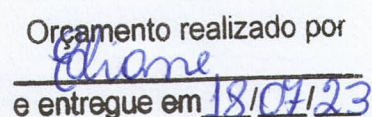 Orçamento realizado por
Eliane
e entregue em 18/07/23